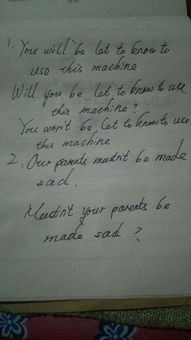 1. You will be let to know to
use this machine
Will you be let to know to use
this machine?
You won't be let to know to use
this machine
2. Our parents mustn't be made
sad.
Mustn't your parents be
made sad?